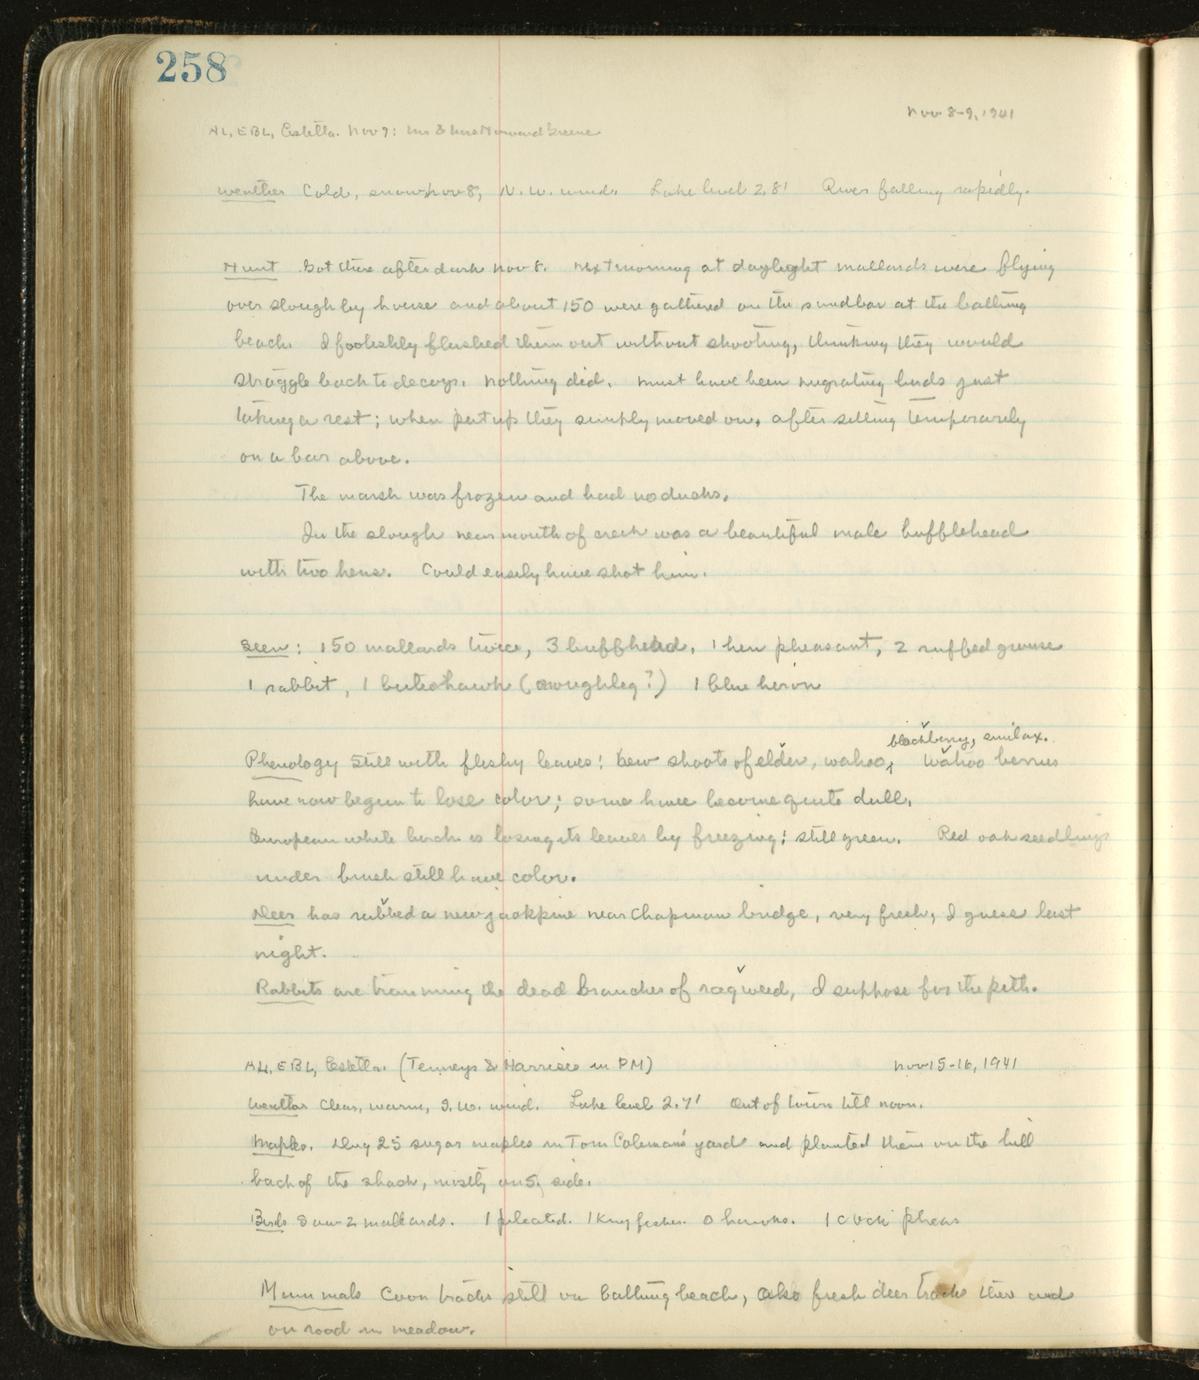 258
Nov 8-9, 1941
AL, EBL, Estella. Nov 9: Mr & Mrs Howard Greene
Weather Cold, snow Nov 8, N.W. wind. Lake level 2.8' River falling rapidly.
Hunt Got there after dark Nov 8. Next morning at daylight mallards were flying
over slough by house and about 150 were gathered on the sandbar at the bathing
beach. I foolishly flushed them out without shooting, thinking they would
straggle back to decoys. Nothing did. Must have been migrating birds just
taking a rest; when put up they simply moved on, after sitting temporarily
on a bar above.
The marsh was frozen and had no ducks.
In the slough near mouth of creek was a beautiful male bufflehead
with two hens. Could easily have shot him.
Seen: 150 mallards twice, 3 bufflehead, 1 hen pheasant, 2 ruffed grouse
1 rabbit, 1 buteo hawk (roughleg?) 1 blue heron
blackberry, smilax.
Phenology Still with fleshy leaves: few shoots of elder, wahoo, Wahoo berries
have now begun to lose color; some have become quite dull.
European white birch is losing its leaves by freezing; still green. Red oak seedlings
under brush still have color.
Deer has rubbed a new jackpine near Chapman bridge, very fresh, I guess last
night.
Rabbits are trimming the dead branches of ragweed, I suppose for the pith.
AL, EBL, Estella. (Tenneys & Harrises in PM) Nov 15-16, 1941
Weather Clear, warm, S.W. wind. Lake level 2.7' Out of town till noon.
Maples. Dug 25 sugar maples in Tom Coleman's yard and planted them on the hill
back of the shack, mostly on S. side.
Birds Saw 2 mallards. 1 pileated. 1 kingfisher. 0 hawks. 1 cock pheas
Mammals Coon tracks still on bathing beach, also fresh deer tracks there and
on road in meadow.